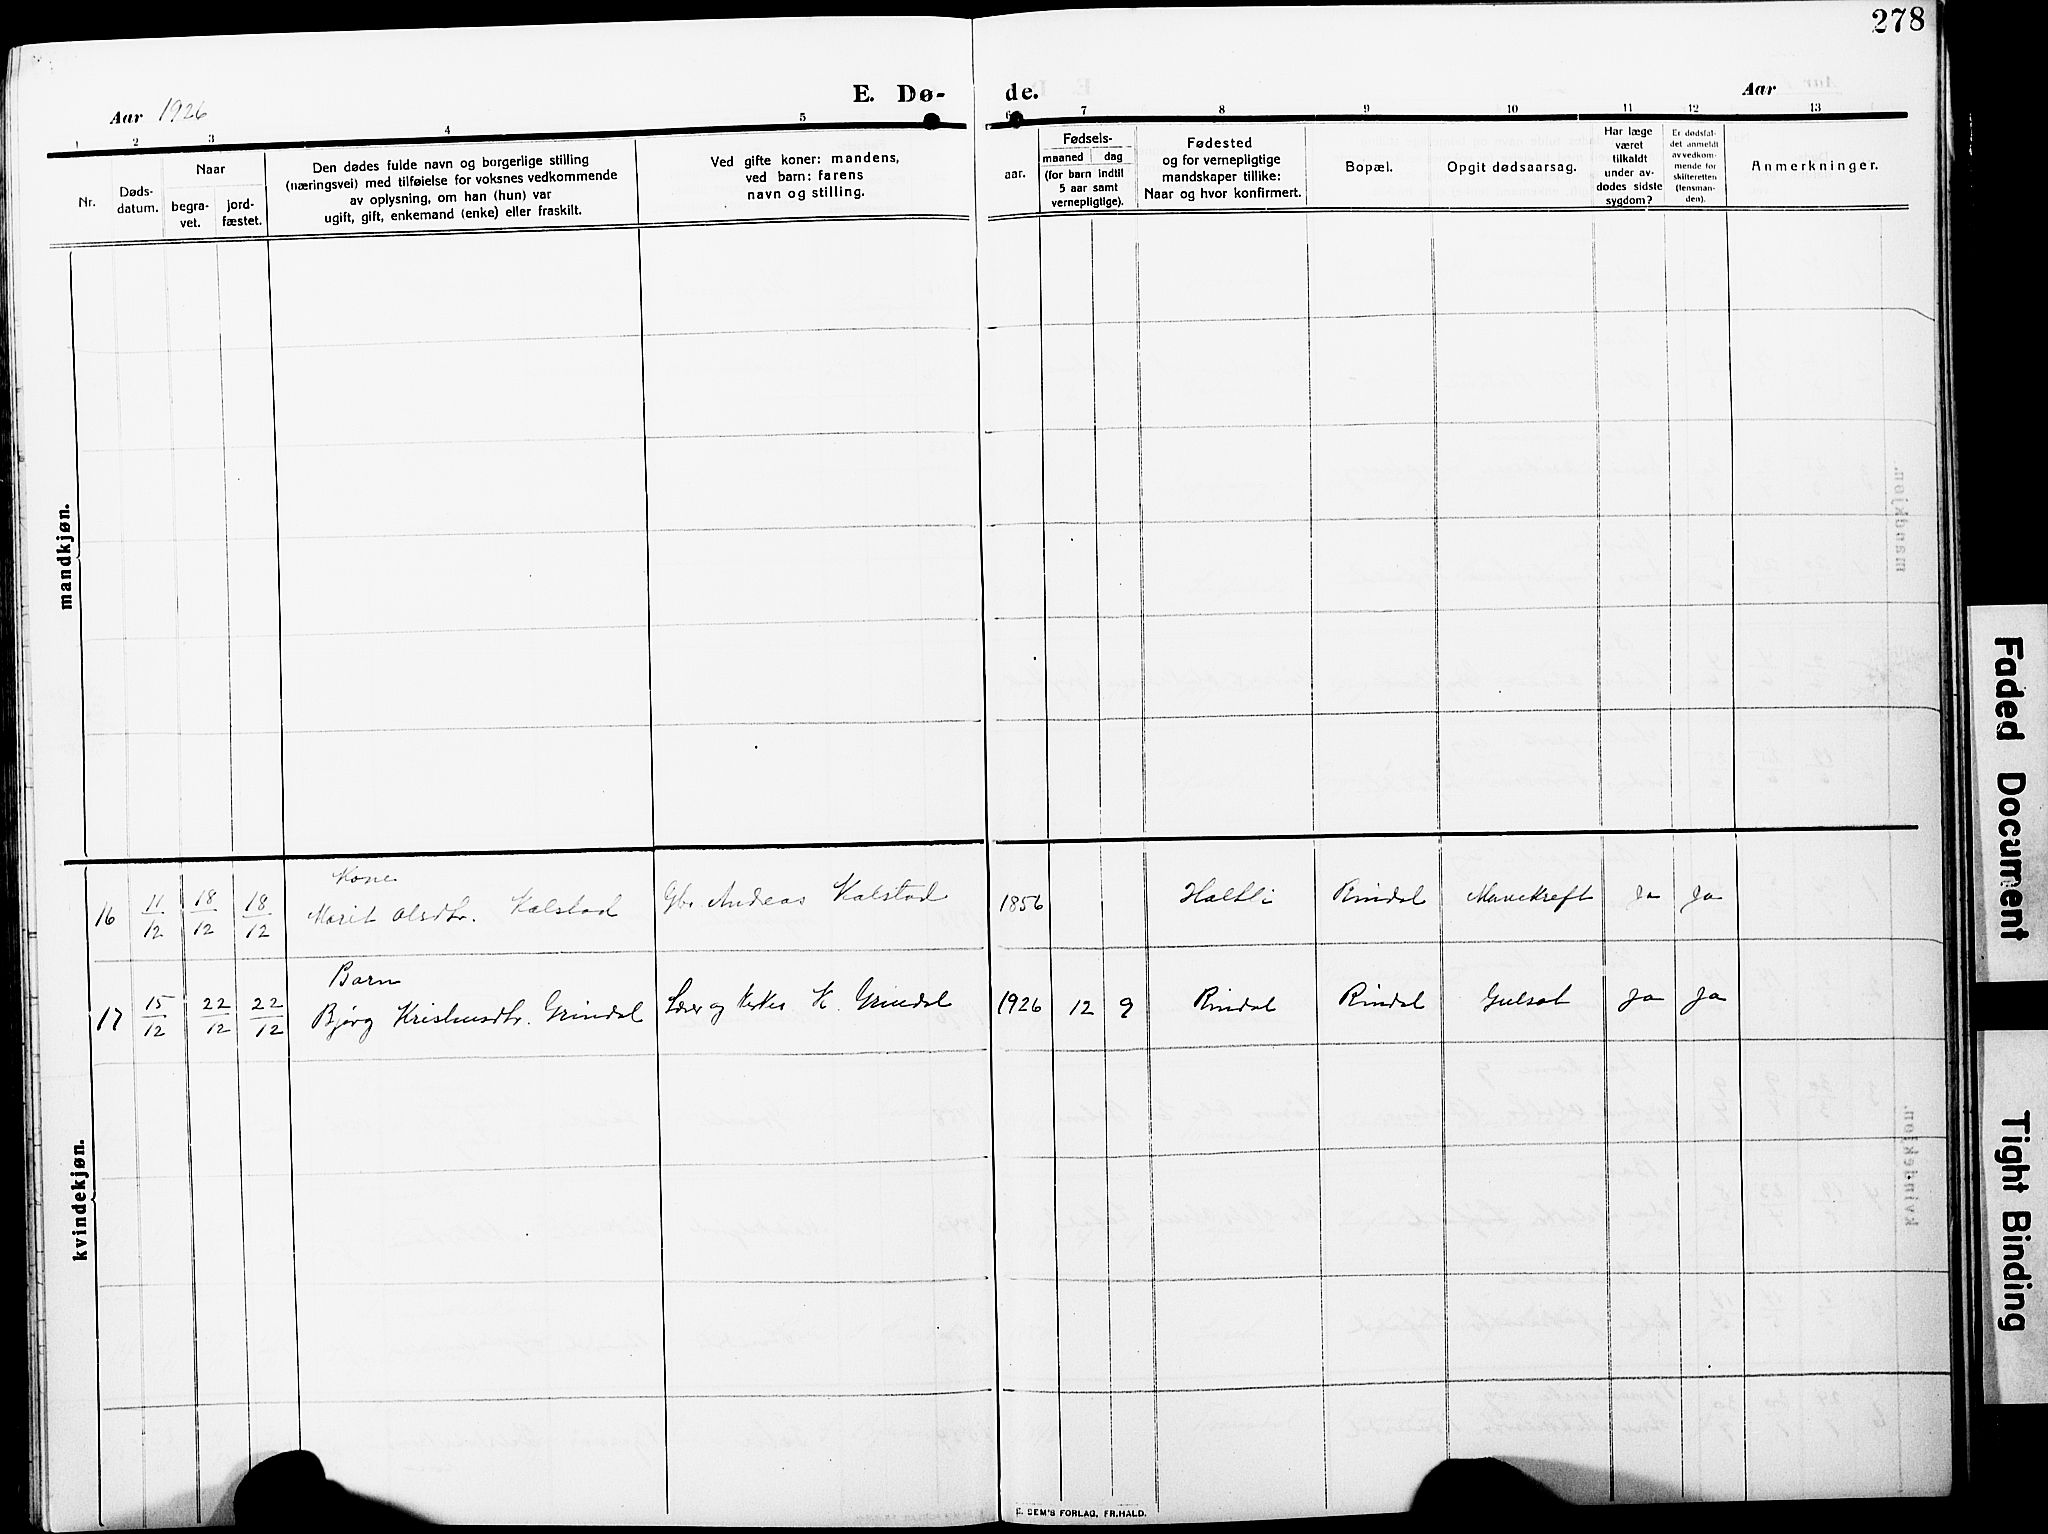 278
Aar 1926
E. Dø-
de.
Aar
1 2 3 4 5 6 7 8 9 10 11 12 13
Nr.
Døds-
datum.
Naar
begra-
vet.
jord-
fæstet.
Den dødes fulde navn og borgerlige stilling
(næringsvei) med tilføielse for voksnes vedkommende
av oplysning, om han (hun) var
ugift, gift, enkemand (enke) eller fraskilt.
Ved gifte koner: mandens,
ved barn: farens
navn og stilling.
aar.
Fødsels-
maaned dag
(for barn indtil
5 aar samt
vernepligtige).
Fødested
og for vernepligtige
mandskaper tillike:
Naar og hvor konfirmert.
Bopæl.
Opgit dødsaarsag.
Har læge
været
tilkaldt
under av-
dødes sidste
sygdom?
Er dødsfal-
det anmeldt
av vedkom-
mende for
skifteretten
(lensman-
den).
Anmerkninger.
mandkjøn.
Kone
16 11/12 18/12 18/12 Marit Olsdtr. Kalstad Gbr. Andreas Kalstad 1856 Haltli Rindal Mavekreft Ja Ja
Barn
17 15/12 22/12 22/12 Bjørg Grindal Lærer og K. Grindal 1926 12 9 Rindal Rindal Gulsot Ja Ja
kvindekjøn.
E. SEM'S FORLAG, FR.HALD.
mandkjøn.
kvindekjøn.
Faded Document
Tight Binding